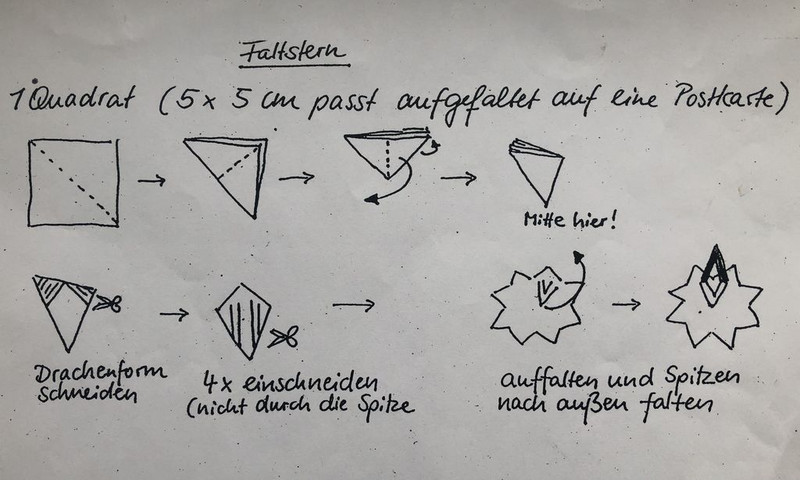 Faltstern
1 Quadrat (5 x 5 cm passt aufgefaltet auf eine Postkarte)
Mitte hier!
Drachenform
schneiden
4x einschneiden
(nicht durch die Spitze
auffalten und Spitzen
nach außen falten